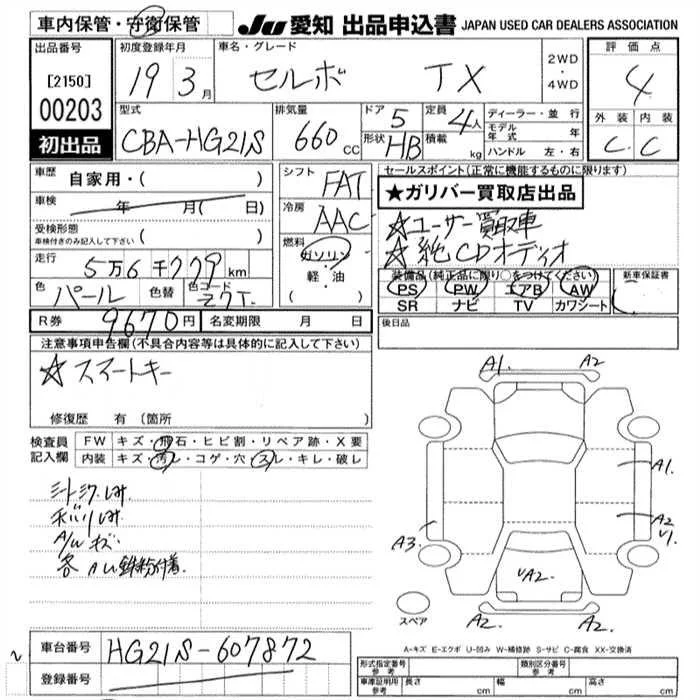 車内保管・守衛保管
JU 愛知 出品申込書 JAPAN USED CAR DEALERS ASSOCIATION
出品番号
[2150]
00203
初出品
初度登録年月
19 3月
車名・グレード
セルボ TX
2WD
・
4WD
評価点
4
外装 内装
C C
型式
CBA-HG21S
排気量
660 CC
ドア 5
形状 HB
定員 4人
積載 kg
ディーラー・並行
モデル年式 年
ハンドル 左・右
車歴
自家用・( )
車検
年 月(日)
受検形態
車検付きのみ記入して下さい ( )
走行
5万6千779km
色 パール
色替
色コード Z7T
シフト
FAT
冷房
AAC
燃料
ガソリン
・
軽・油
( )
セールスポイント(正常に機能するものに限ります)
★ガリバー買取店出品
☆ユーザー買取車
☆純CDオーディオ
装備品(純正品に限り○をつけてください)
PS PW エアB AW
SR ナビ TV カワシート
新車保証書
後日品
R券 9670円
名変期限 月 日
注意事項申告欄(不具合内容等は具体的に記入して下さい)
☆スマートキー
修復歴 有(箇所 )
検査員記入欄
FW キズ・飛石・ヒビ割・リペア跡・X要
内装 キズ・汚レ・コゲ・穴・スレ・キレ・破レ
A/W キズ
各AW鉄粉付着
A1. A2
A1.
A2
V1
A3.
VA2.
A2. A2.
スペア
A-キズ E-エクボ U-凹み W-補修跡 S-サビ C-腐食 XX-交換済
車台番号 HG21S-607872
登録番号
形式指定番号
参考
類別区分番号
参考
車庫証明用
参考
長さ cm 幅 cm 高さ cm